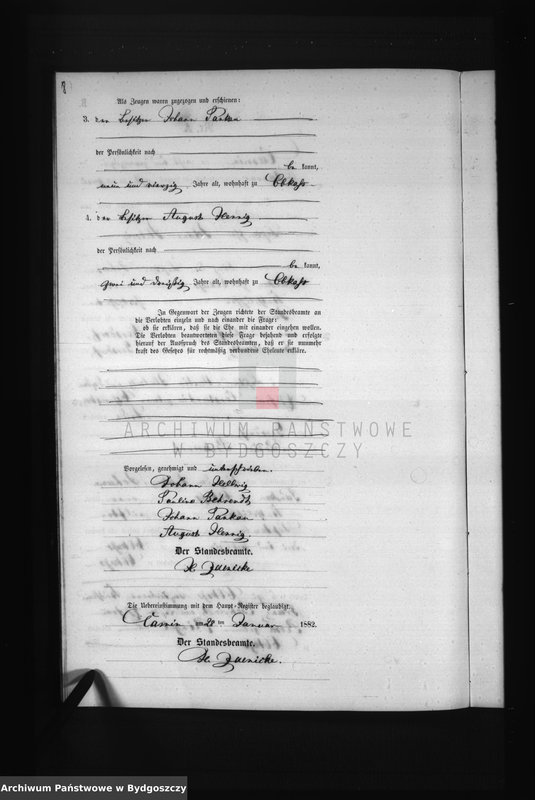 8
Als Zeugen waren zugezogen und erschienen:
3. der Besitzer Johann Pankau
der Persönlichkeit nach
be kannt,
neun und vierzig Jahre alt, wohnhaft zu Obkaß
4. der Besitzer August Hennig
der Persönlichkeit nach
be kannt,
zwei und dreißig Jahre alt, wohnhaft zu Obkaß
In Gegenwart der Zeugen richtete der Standesbeamte an
die Verlobten einzeln und nach einander die Frage:
ob sie erklären, daß sie die Ehe mit einander eingehen wollen.
Die Verlobten beantworteten diese Frage bejahend und erfolgte
hierauf der Ausspruch des Standesbeamten, daß er sie nunmehr
kraft des Gesetzes für rechtmäßig verbundene Eheleute erkläre.
ARCHIWUM PAŃSTWOWE
W BYDGOSZCZY
Vorgelesen, genehmigt und unterschrieben.
Johann Hellwig
Pauline Behrendt
Johann Pankau
August Hennig.
Der Standesbeamte.
Die Uebereinstimmung mit dem Haupt-Register beglaubigt.
Camin am 20 ten Januar 1882.
Der Standesbeamte.
Archiwum Państwowe w Bydgoszczy